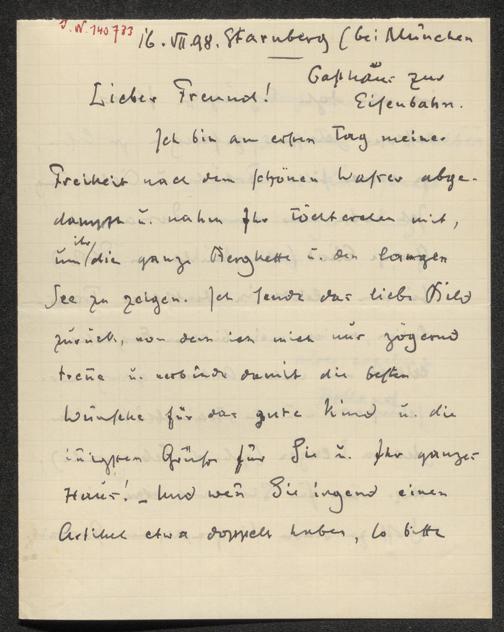 J. N. 140733
16. VII. 98. Starnberg (bei München
Gasthaus zur
Lieber Freund! Eisenbahn.
Ich bin am ersten Tag meiner
Freiheit nach dem schönen Wasser abge-
dampft u. nahm Ihr Töchterchen mit,
um ihr die ganze Bergkette u. den langen
See zu zeigen. Ich sende das liebe Bild
zurück, von dem ich mich nur zögernd
treñe u. verbinde damit die besten
Wünsche für das gute Kind u. die
iñigsten Grüße für Sie u. Ihr ganzes
Haus! – Und weñ Sie irgend einen
Artikel etwa doppelt haben, so bitte